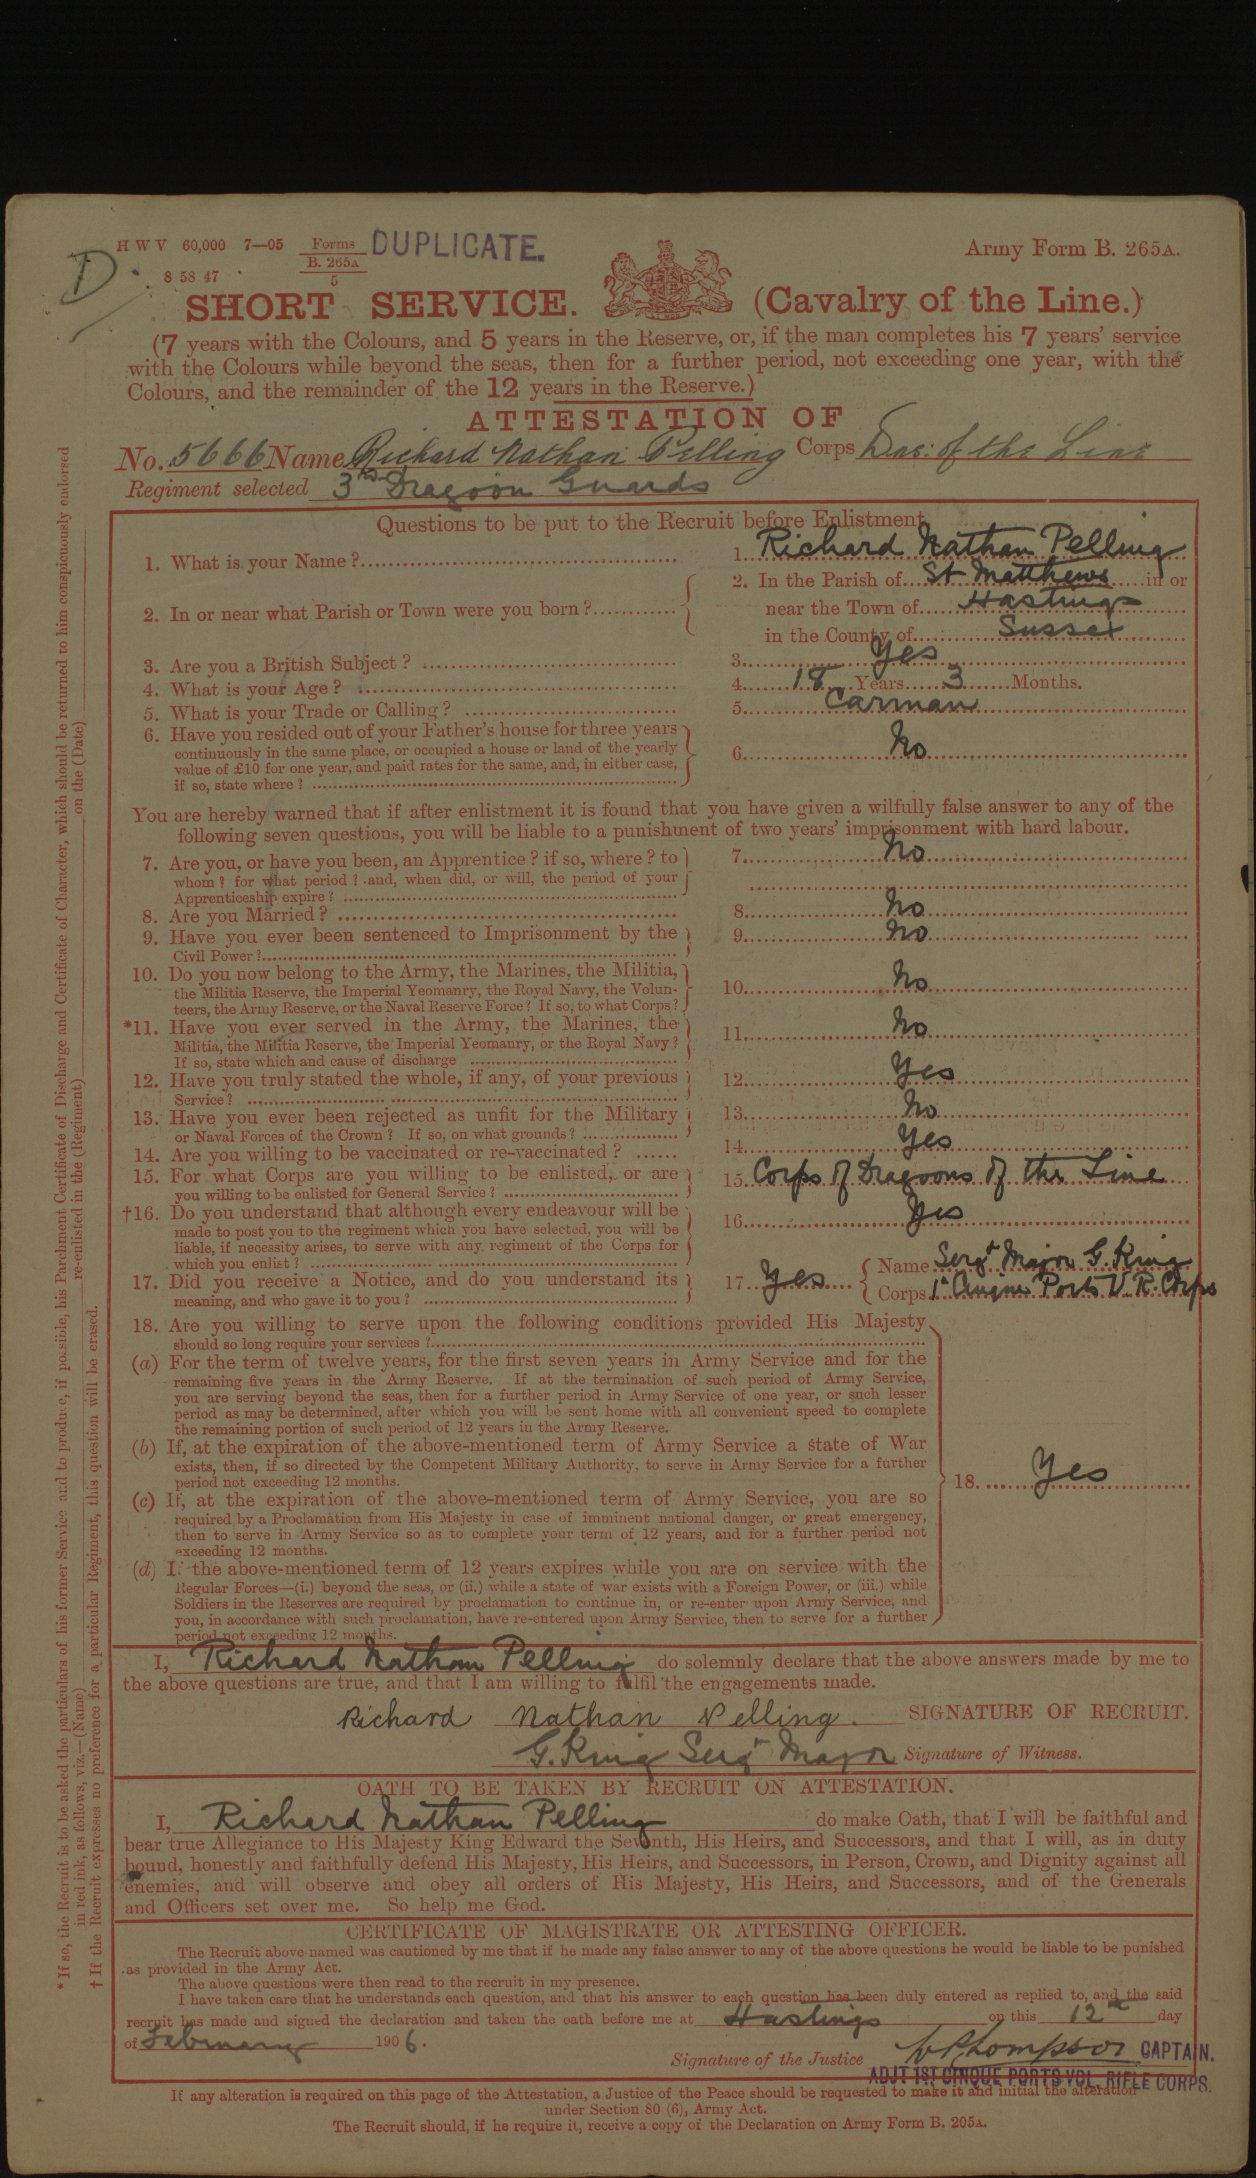 D
H W V 60,000 7—05 Forms B. 265A 5 DUPLICATE. Army Form B. 265A.
8 58 47
SHORT SERVICE. (Cavalry of the Line.)
(7 years with the Colours, and 5 years in the Reserve, or, if the man completes his 7 years' service
with the Colours while beyond the seas, then for a further period, not exceeding one year, with the
Colours, and the remainder of the 12 years in the Reserve.)
ATTESTATION OF
No. 5666 Name Richard Nathan Pelling Corps of the Line
Regiment selected 3rd Dragoon Guards
Questions to be put to the Recruit before Enlistment
1. What is your Name? 1. Richard Nathan Pelling
2. In or near what Parish or Town were you born? 2. In the Parish of St Matthews in or
near the Town of Hastings
in the County of Sussex
3. Are you a British Subject? 3. Yes
4. What is your Age? 4. 18 Years 3 Months.
5. What is your Trade or Calling? 5. Carman
6. Have you resided out of your Father's house for three years
continuously in the same place, or occupied a house or land of the yearly
value of £10 for one year, and paid rates for the same, and, in either case,
if so, state where? 6. No
You are hereby warned that if after enlistment it is found that you have given a wilfully false answer to any of the
following seven questions, you will be liable to a punishment of two years' imprisonment with hard labour.
7. Are you, or have you been, an Apprentice? if so, where? to 7. No
whom? for what period? and, when did, or will, the period of your
Apprenticeship expire?
8. Are you Married? 8. No
9. Have you ever been sentenced to Imprisonment by the 9. No
Civil Power?
10. Do you now belong to the Army, the Marines, the Militia,
the Militia Reserve, the Imperial Yeomanry, the Royal Navy, the Volun- 10. No
teers, the Army Reserve, or the Naval Reserve Force? If so, to what Corps?
*11. Have you ever served in the Army, the Marines, the 11. No
Militia, the Militia Reserve, the Imperial Yeomanry, or the Royal Navy?
If so, state which and cause of discharge
12. Have you truly stated the whole, if any, of your previous 12. Yes
Service?
13. Have you ever been rejected as unfit for the Military 13. No
or Naval Forces of the Crown? If so, on what grounds?
14. Are you willing to be vaccinated or re-vaccinated? 14. Yes
15. For what Corps are you willing to be enlisted, or are 15. Corps of Dragoons of the Line
you willing to be enlisted for General Service?
†16. Do you understand that although every endeavour will be 16. Yes
made to post you to the regiment which you have selected, you will be
liable, if necessity arises, to serve with any regiment of the Corps for
which you enlist?
17. Did you receive a Notice, and do you understand its 17. Yes Name Sergt Major G. King
meaning, and who gave it to you? Corps 1st Cinque Ports V. R. Corps
18. Are you willing to serve upon the following conditions provided His Majesty
should so long require your services?
(a) For the term of twelve years, for the first seven years in Army Service and for the
remaining five years in the Army Reserve. If at the termination of such period of Army Service,
you are serving beyond the seas, then for a further period in Army Service of one year, or such lesser
period as may be determined, after which you will be sent home with all convenient speed to complete
the remaining portion of such period of 12 years in the Army Reserve.
(b) If, at the expiration of the above-mentioned term of Army Service a state of War
exists, then, if so directed by the Competent Military Authority, to serve in Army Service for a further
period not exceeding 12 months. 18. Yes
(c) If, at the expiration of the above-mentioned term of Army Service, you are so
required by a Proclamation from His Majesty in case of imminent national danger, or great emergency,
then to serve in Army Service so as to complete your term of 12 years, and for a further period not
exceeding 12 months.
(d) If the above-mentioned term of 12 years expires while you are on service with the
Regular Forces—(i.) beyond the seas, or (ii.) while a state of war exists with a Foreign Power, or (iii.) while
Soldiers in the Reserves are required by proclamation to continue in, or re-enter upon Army Service, and
you, in accordance with such proclamation, have re-entered upon Army Service, then to serve for a further
period not exceeding 12 months.
I, Richard Nathan Pelling do solemnly declare that the above answers made by me to
the above questions are true, and that I am willing to fulfil the engagements made.
Richard Nathan Pelling. SIGNATURE OF RECRUIT.
G. King Sergt Major Signature of Witness.
OATH TO BE TAKEN BY RECRUIT ON ATTESTATION.
I, Richard Nathan Pelling do make Oath, that I will be faithful and
bear true Allegiance to His Majesty King Edward the Seventh, His Heirs, and Successors, and that I will, as in duty
bound, honestly and faithfully defend His Majesty, His Heirs, and Successors, in Person, Crown, and Dignity against all
enemies, and will observe and obey all orders of His Majesty, His Heirs, and Successors, and of the Generals
and Officers set over me. So help me God.
CERTIFICATE OF MAGISTRATE OR ATTESTING OFFICER.
The Recruit above-named was cautioned by me that if he made any false answer to any of the above questions he would be liable to be punished
as provided in the Army Act.
The above questions were then read to the recruit in my presence.
I have taken care that he understands each question, and that his answer to each question has been duly entered as replied to, and the said
recruit has made and signed the declaration and taken the oath before me at Hastings on this 12th day
of February 1906.
Signature of the Justice Thompson CAPTAIN.
ADJT 1ST CINQUE PORTS VOL. RIFLE CORPS.
If any alteration is required on this page of the Attestation, a Justice of the Peace should be requested to make it and initial the alteration
under Section 80 (6), Army Act.
The Recruit should, if he require it, receive a copy of the Declaration on Army Form B. 205A.
* If so, the Recruit is to be asked the particulars of his former Service and to produce, if possible, his Parchment Certificate of Discharge and Certificate of Character, which should be returned to him conspicuously endorsed
in red ink, as follows, viz.—(Name) re-enlisted in the (Regiment) on the (Date)
† If the Recruit expresses no preference for a particular Regiment, this question will be erased.